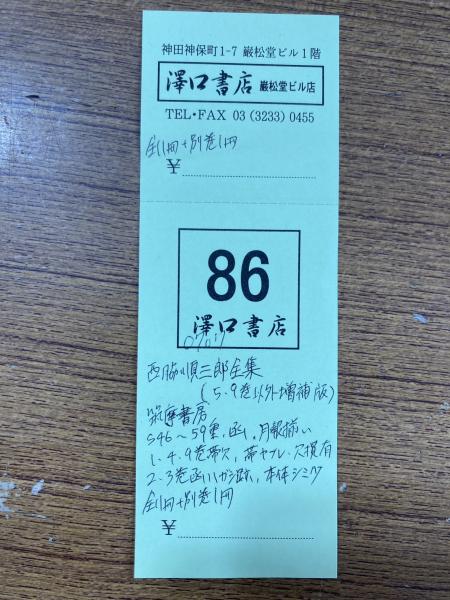 神田神保町1-7 巌松堂ビル1階
澤口書店 巌松堂ビル店
TEL・FAX 03 (3233) 0455
全11冊+別巻1冊
¥
86
澤口書店
西脇順三郎全集
(5.9巻以外増補版)
筑摩書房
S46〜59重.函.月報揃い
1.4.9巻帯欠,帯ヤブレ・欠損有
2.3巻函ハガシ跡,本体シミヤケ
全11冊+別巻1冊
¥